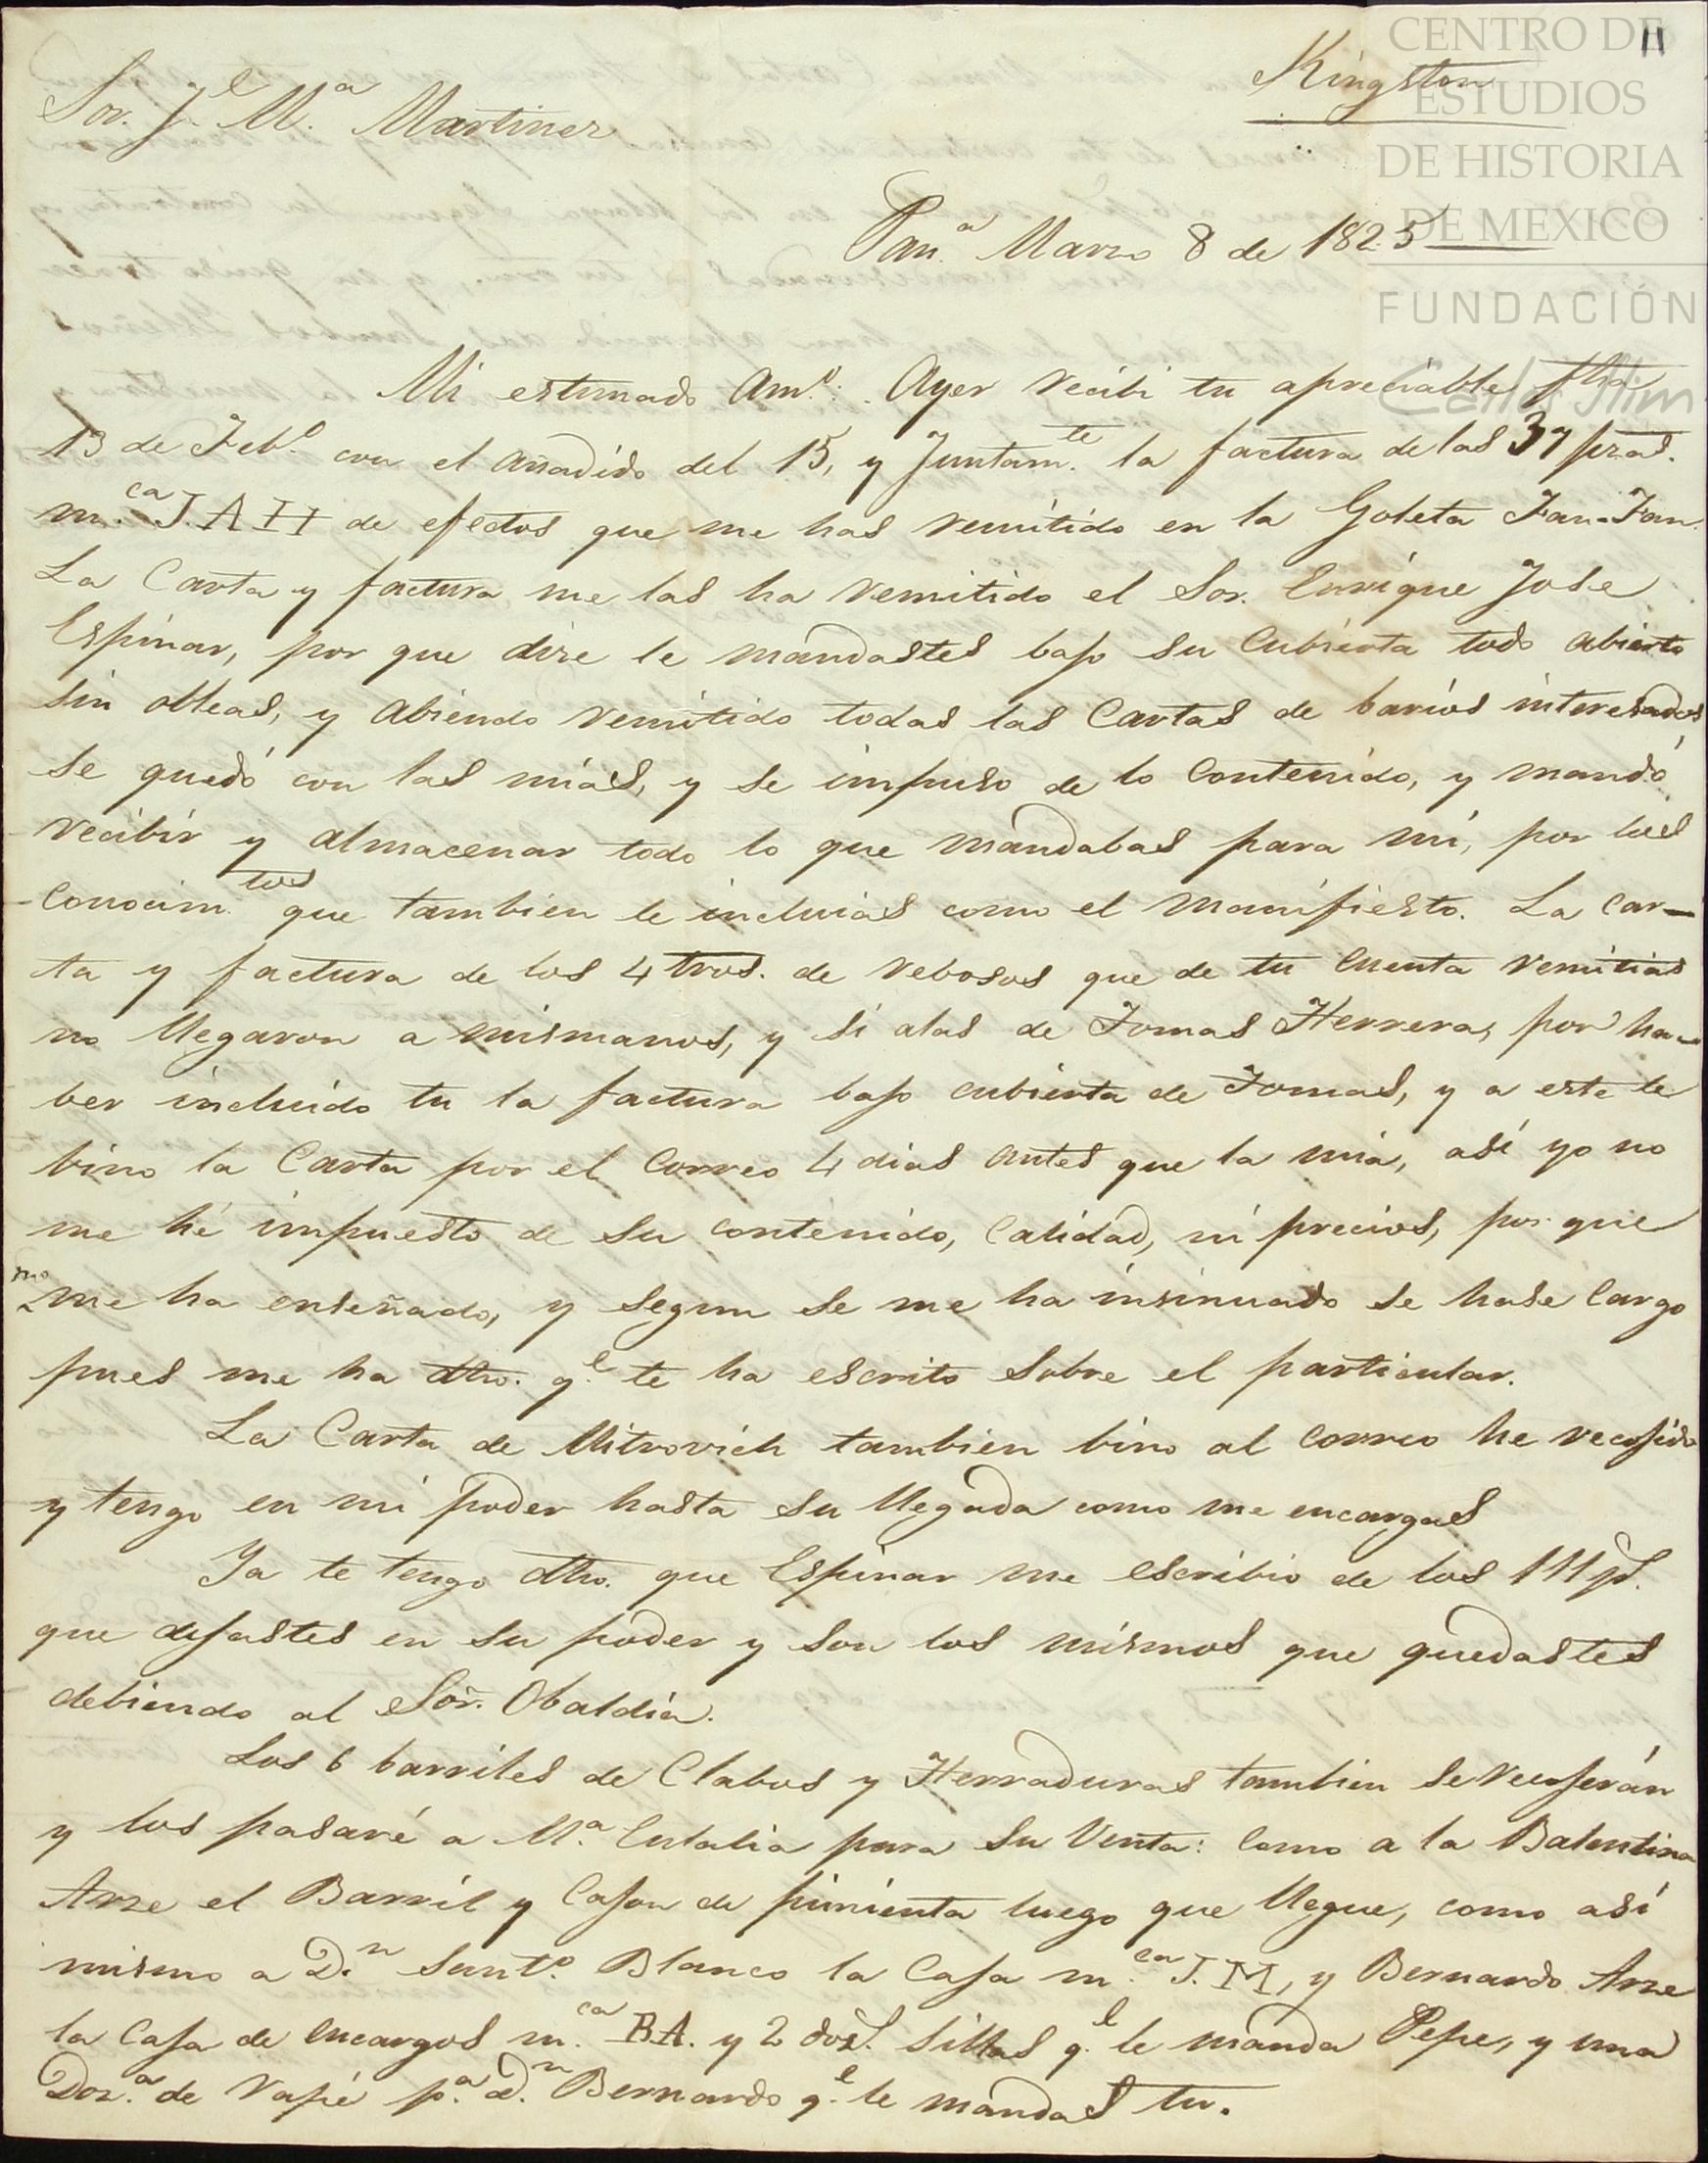 CENTRO DE
ESTUDIOS
DE HISTORIA
DE MEXICO
FUNDACIÓN
Carlos Slim
11
Kingston
Sor. Je. Ma. Martinez
Pan.a Marzo 8 de 1825
Mi estimado Am.o: Ayer recibi tu apreciable fha.
13 de Feb.o con el añadido del 15, y Juntam.te la factura de las 37 pzas.
m.ca J.AH de efectos que me has remitido en la Goleta Fan-Fan.
La Carta y factura me las ha remitido el Sor. Enrique Jose
Espinar, por que dize le mandastes bajo su Cubierta todo abierto
sin obleas, y abiendo remitido todas las Cartas de barios interesados
se quedó con las mias, y se impuso de lo Contenido, y mandó
recibir y almacenar todo lo que mandabas para mi, por los
conocim.tos que tambien le incluias como el Manifiesto. La car-
ta y factura de los 4 tros. de rebosos que de tu Cuenta remitias
no llegaron a mismanos, y si alas de Tomas Herrera, por ha-
ber incluido tu la factura bajo cubierta de Tomas, y a este le
bino la Carta por el Correo 4 dias antes que la mia, asi yo no
me hé impuesto de su contenido, Calidad, ni precios, por que
no me ha enseñado, y segun se me ha insinuado se hase Cargo
pues me ha dho. q.e te ha escrito sobre el particular.
La Carta de Mitrovich tambien bino al Correo he recojido
y tengo en mi poder hasta su llegada como me encargas
Ya te tengo dho. que Espinar me escribio de los 111 ps.
que dejastes en su poder y son los mismos que quedastes
debiendo al Sor. Obaldia.
Los 6 barriles de Clabos y Herraduras tambien se recojerán
y los pasaré a Ma. Eulalia para su Venta: como a la Balentina
Arze el Barril y Cajon de pimienta luego que llegue, como asi
mismo a D.n Sant.o Blanco la Caja m.ca J.M, y Bernardo Arze
la Caja de encargos m.ca BA. y 2 dozs. sillas q.e le manda Pepe, y una
Doz.a de rapé p.a D.n Bernardo q.e le mandas tu.